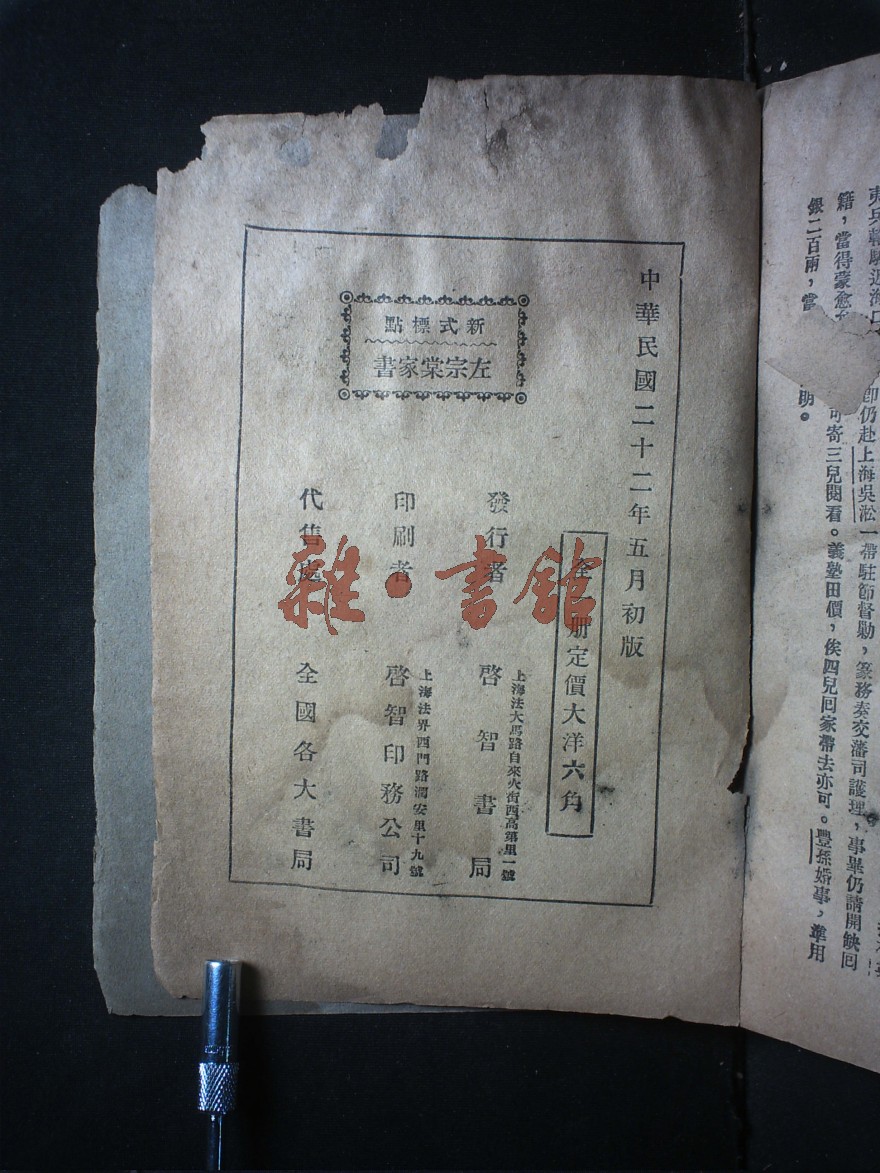 夷兵
籍，當得蒙愈
銀二百兩，當
節仍赴上海吳淞一帶駐節督勦，篆務奏交藩司護理，事畢仍請開缺回
可寄三兒閱看。義塾田價，俟四兒回家帶去亦可。豐孫婚事，準用
明。
中華民國二十二年五月初版
全一册定價大洋六角
新式標點
左宗棠家書
發行者
上海法大馬路自來火街西高第里一號
啓智書局
印刷者
上海法界西門路潤安里十九號
啓智印務公司
代售處
全國各大書局
雜·書館